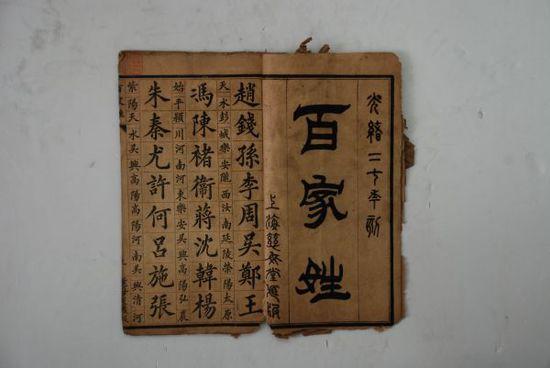 光緒二
年
百家姓
上海
堂
趙錢孫李周吳鄭王
天水彭城樂安隴西汝南延陵滎陽太原
馮陳褚衞蔣沈韓楊
始平潁川河南河東樂安吳興高陽弘農
朱秦尤許何呂施張
紫陽天水吳興高陽高陽河南吳興清河